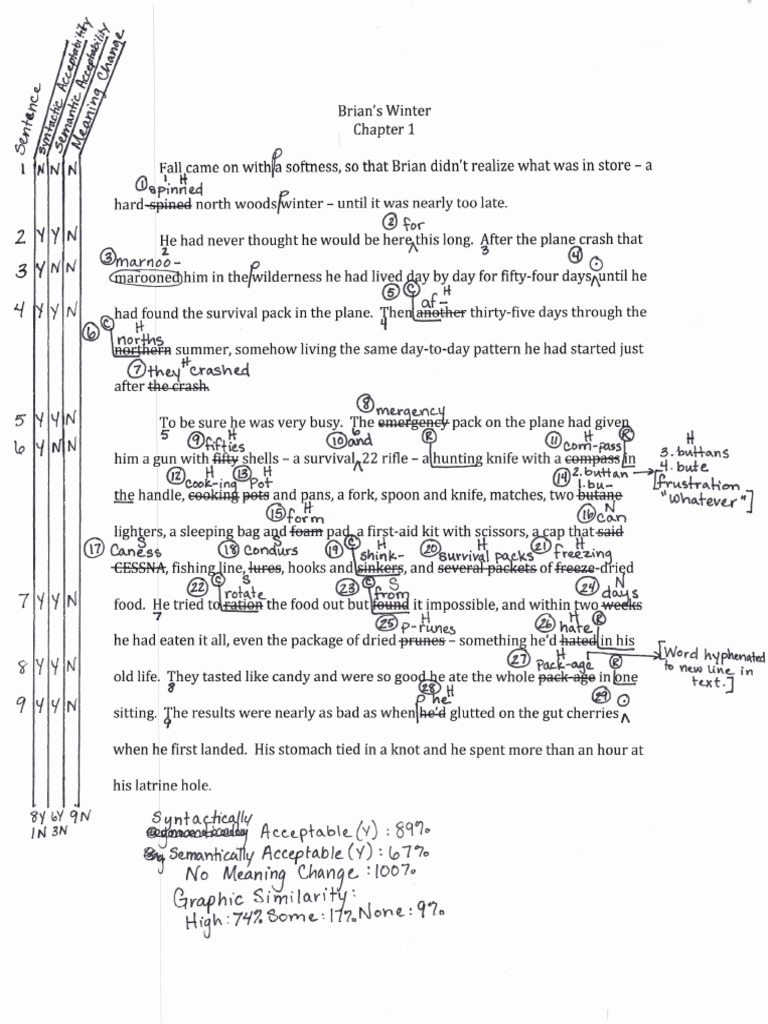 Sentence
Syntactic Acceptability
Semantic Acceptability
Meaning Change
Brian's Winter
Chapter 1
1 N N N Fall came on with a softness, so that Brian didn't realize what was in store – a
① spinned H
1
hard-spined north woods winter – until it was nearly too late.
② for
2 Y Y N He had never thought he would be here this long. After the plane crash that
③ marnoo- 2 3 ④
3 Y N N marooned him in the wilderness he had lived day by day for fifty-four days until he
⑤ © af- H
4 Y Y N had found the survival pack in the plane. Then another thirty-five days through the
⑥ © H 4
norths
northern summer, somehow living the same day-to-day pattern he had started just
⑦ they H crashed
after the crash.
⑧ mergency
5 Y Y N To be sure he was very busy. The emergency pack on the plane had given
5 6
6 Y N N ⑨ fifties H ⑩ and Ⓡ ⑪ com-pass H Ⓡ
him a gun with fifty shells – a survival 22 rifle – a hunting knife with a compass in
⑫ cook-ing H ⑬ Pot H ⑭ 2. buttan 1. bu-
H
3. buttans
4. bute
[frustration
"whatever"]
the handle, cooking pots and pans, a fork, spoon and knife, matches, two butane
⑮ form H ⑯ can N
lighters, a sleeping bag and foam pad, a first-aid kit with scissors, a cap that said
⑰ Caness S ⑱ Condurs S ⑲ © shink- H ⑳ survival packs H ㉑ freezing H
CESSNA, fishing line, lures, hooks and sinkers, and several packets of freeze-dried
㉒ © rotate S ㉓ © from S ㉔ days N
7 Y Y N food. He tried to ration the food out but found it impossible, and within two weeks
7 ㉕ p-runes H ㉖ hate H Ⓡ
he had eaten it all, even the package of dried prunes – something he'd hated in his
㉗ Pack-age H Ⓡ
[Word hyphenated
to new line in
text.]
8 Y Y N old life. They tasted like candy and were so good he ate the whole pack-age in one
8 ㉘ he H ㉙
9 Y Y N sitting. The results were nearly as bad as when he'd glutted on the gut cherries
9
when he first landed. His stomach tied in a knot and he spent more than an hour at
his latrine hole.
8Y 6Y 9N
1N 3N
Syntactically
Acceptable (Y) : 89%
Semantically Acceptable (Y) : 67%
No Meaning Change : 100%
Graphic Similarity:
High: 74% Some: 17% None: 9%